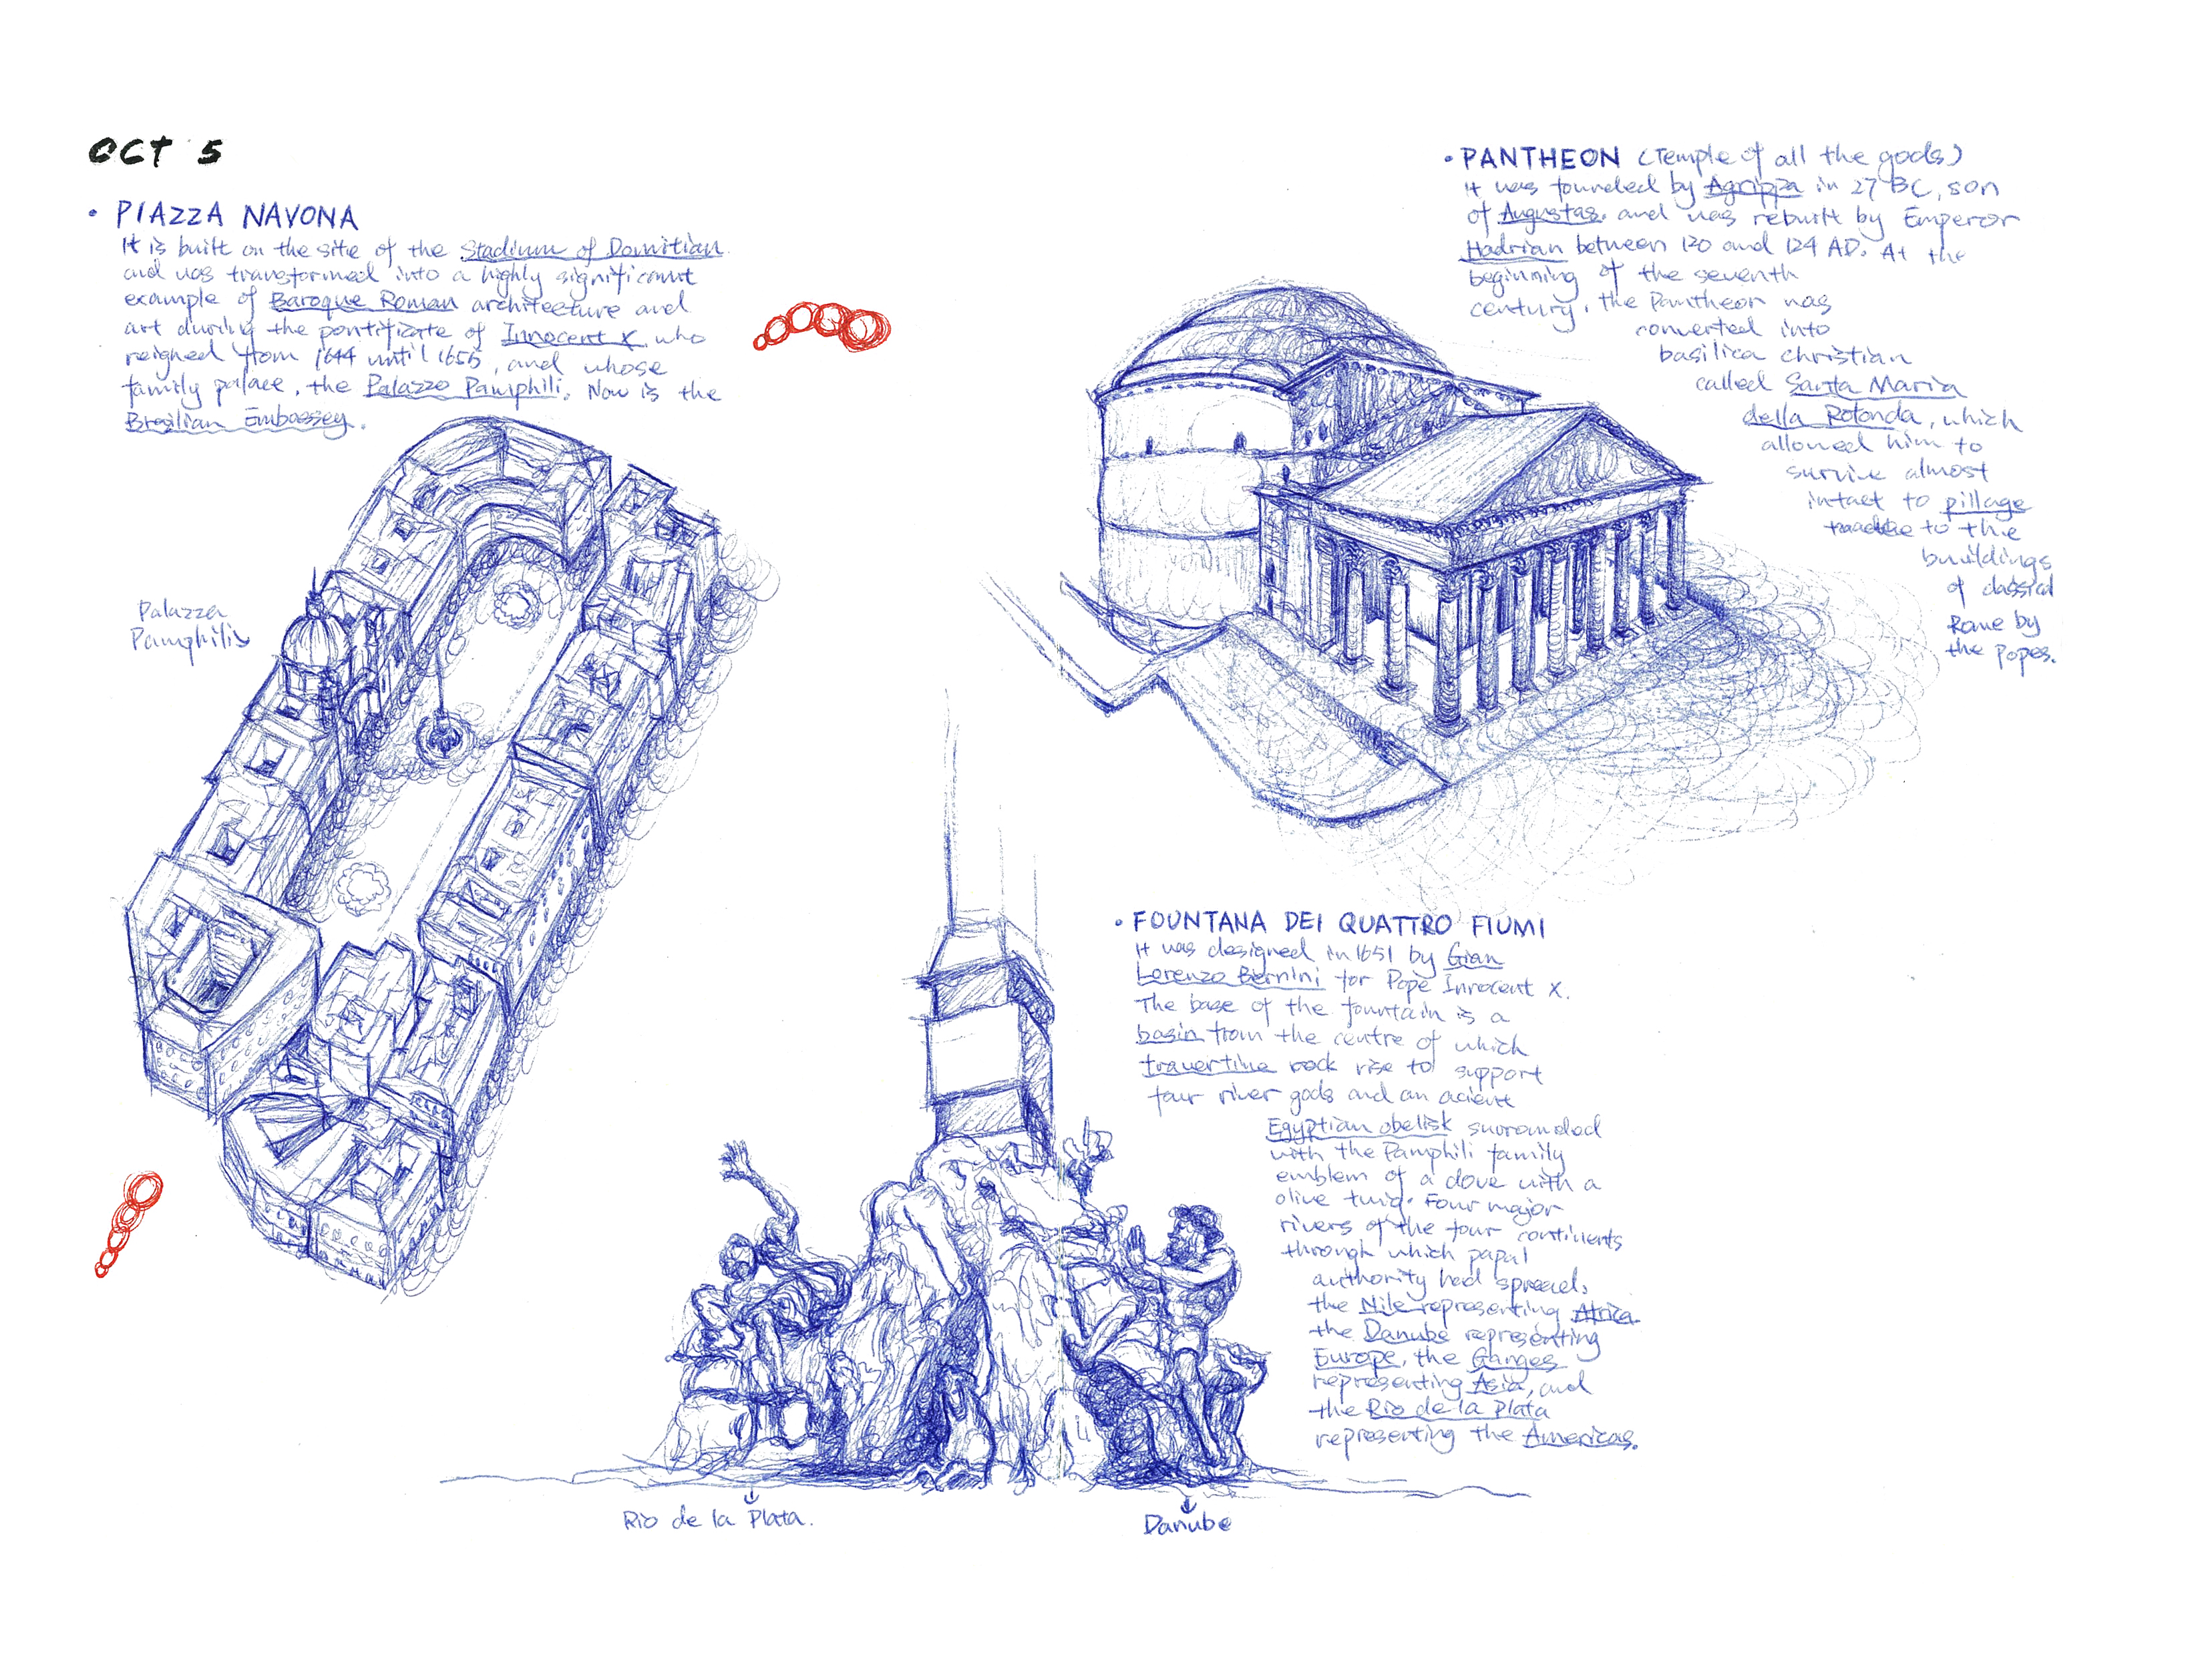 OCT 5
• PIAZZA NAVONA
It is built on the site of the Stadium of Domitian
and was transformed into a highly significant
example of Baroque Roman architecture and
art during the pontificate of Innocent X, who
reigned from 1644 until 1655, and whose
family palace, the Palazzo Pamphili. Now is the
Brasilian Embassey.
Palazza
Pamphilis
• PANTHEON (Temple of all the gods)
It was founded by Agrippa in 27 BC, son
of Augustas. and was rebuilt by Emperor
Hadrian between 120 and 124 AD. At the
beginning of the seventh
century, the Pantheon was
converted into
basilica christian
called Santa Maria
della Rotonda, which
allowed him to
survive almost
intact to pillage
to the
buildings
of classical
Rome by
the popes.
• FOUNTANA DEI QUATTRO FIUMI
It was designed in 1651 by Gian
Lorenzo Bernini for Pope Innocent X.
The base of the fountain is a
basin from the centre of which
travertine rock rise to support
four river gods and an acient
Egyptian obelisk surounded
with the Pamphili family
emblem of a dove with a
olive twig. Four major
rivers of the four continents
through which papal
authority had spread,
the Nile representing Africa
the Danube representing
Europe, the Ganges
representing Asia, and
the Rio de la Plata
representing the Americas.
Rio de la Plata.
Danube